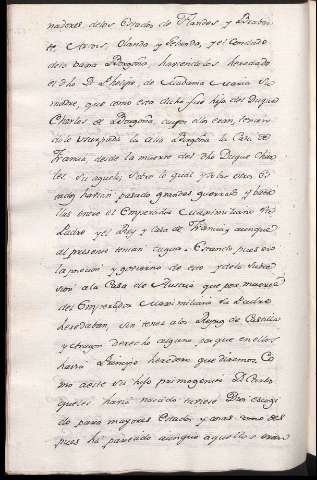 nadores delos Estados de Flandes y Braban-
te, Artois, Olanda y Gelanda, y el Condado
dela baxa Borgoña, haviendolos heredado
el dho D. Phelipe, de Madama Maria su
madre, que como esta dicho fue hija del Duque
Charles de Borgoña, cuyos ellos eran, tenien-
dole usurpada la alta Borgoña la Casa de
Francia, desde la muerte del dho Duque Char-
les su aguelo, sobre lo qual y delos otros Es-
tados, havian pasado grandes guerras, y bata-
llas entre el Emperador Maximiliano su
Padre y el Rey y Casa de Francia, aunque
al presente tenian tregua. Estando pues en
la posesion y govierno de esto y dela subce-
sion ala Casa de Austria que por muerte
del Emperador Maximiliano su Padre
heredaban, sin tener alos Reynos de Castilla
y Aragon derecho alguno porque en ellos
havia Principe heredero que diremos, Co-
mo aeste su hijo primogenito D. Carlos
que le havia nacido tuviese Dios escogi-
do para mayores Estados y cosas como des-
pues ha parecido aunque aquellos eran